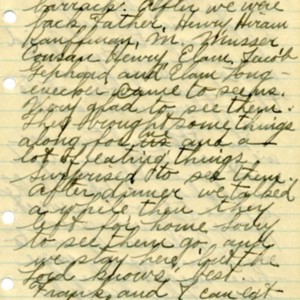 barrack. After we were
back Father, Henry Hiram
Kauffman, M. Musser
Cousan Henry, Elam, Jacob
Sephard and Elam Long-
enecker came to see us.
Very glad to see them.
They brought some things
along for us and a
lot of eating things.
Surprised to see them.
After dinner we talked
a while then they
left for home sorry
to see them go, and
we stay here, but the
Lord knows best.
Frank and I can eat